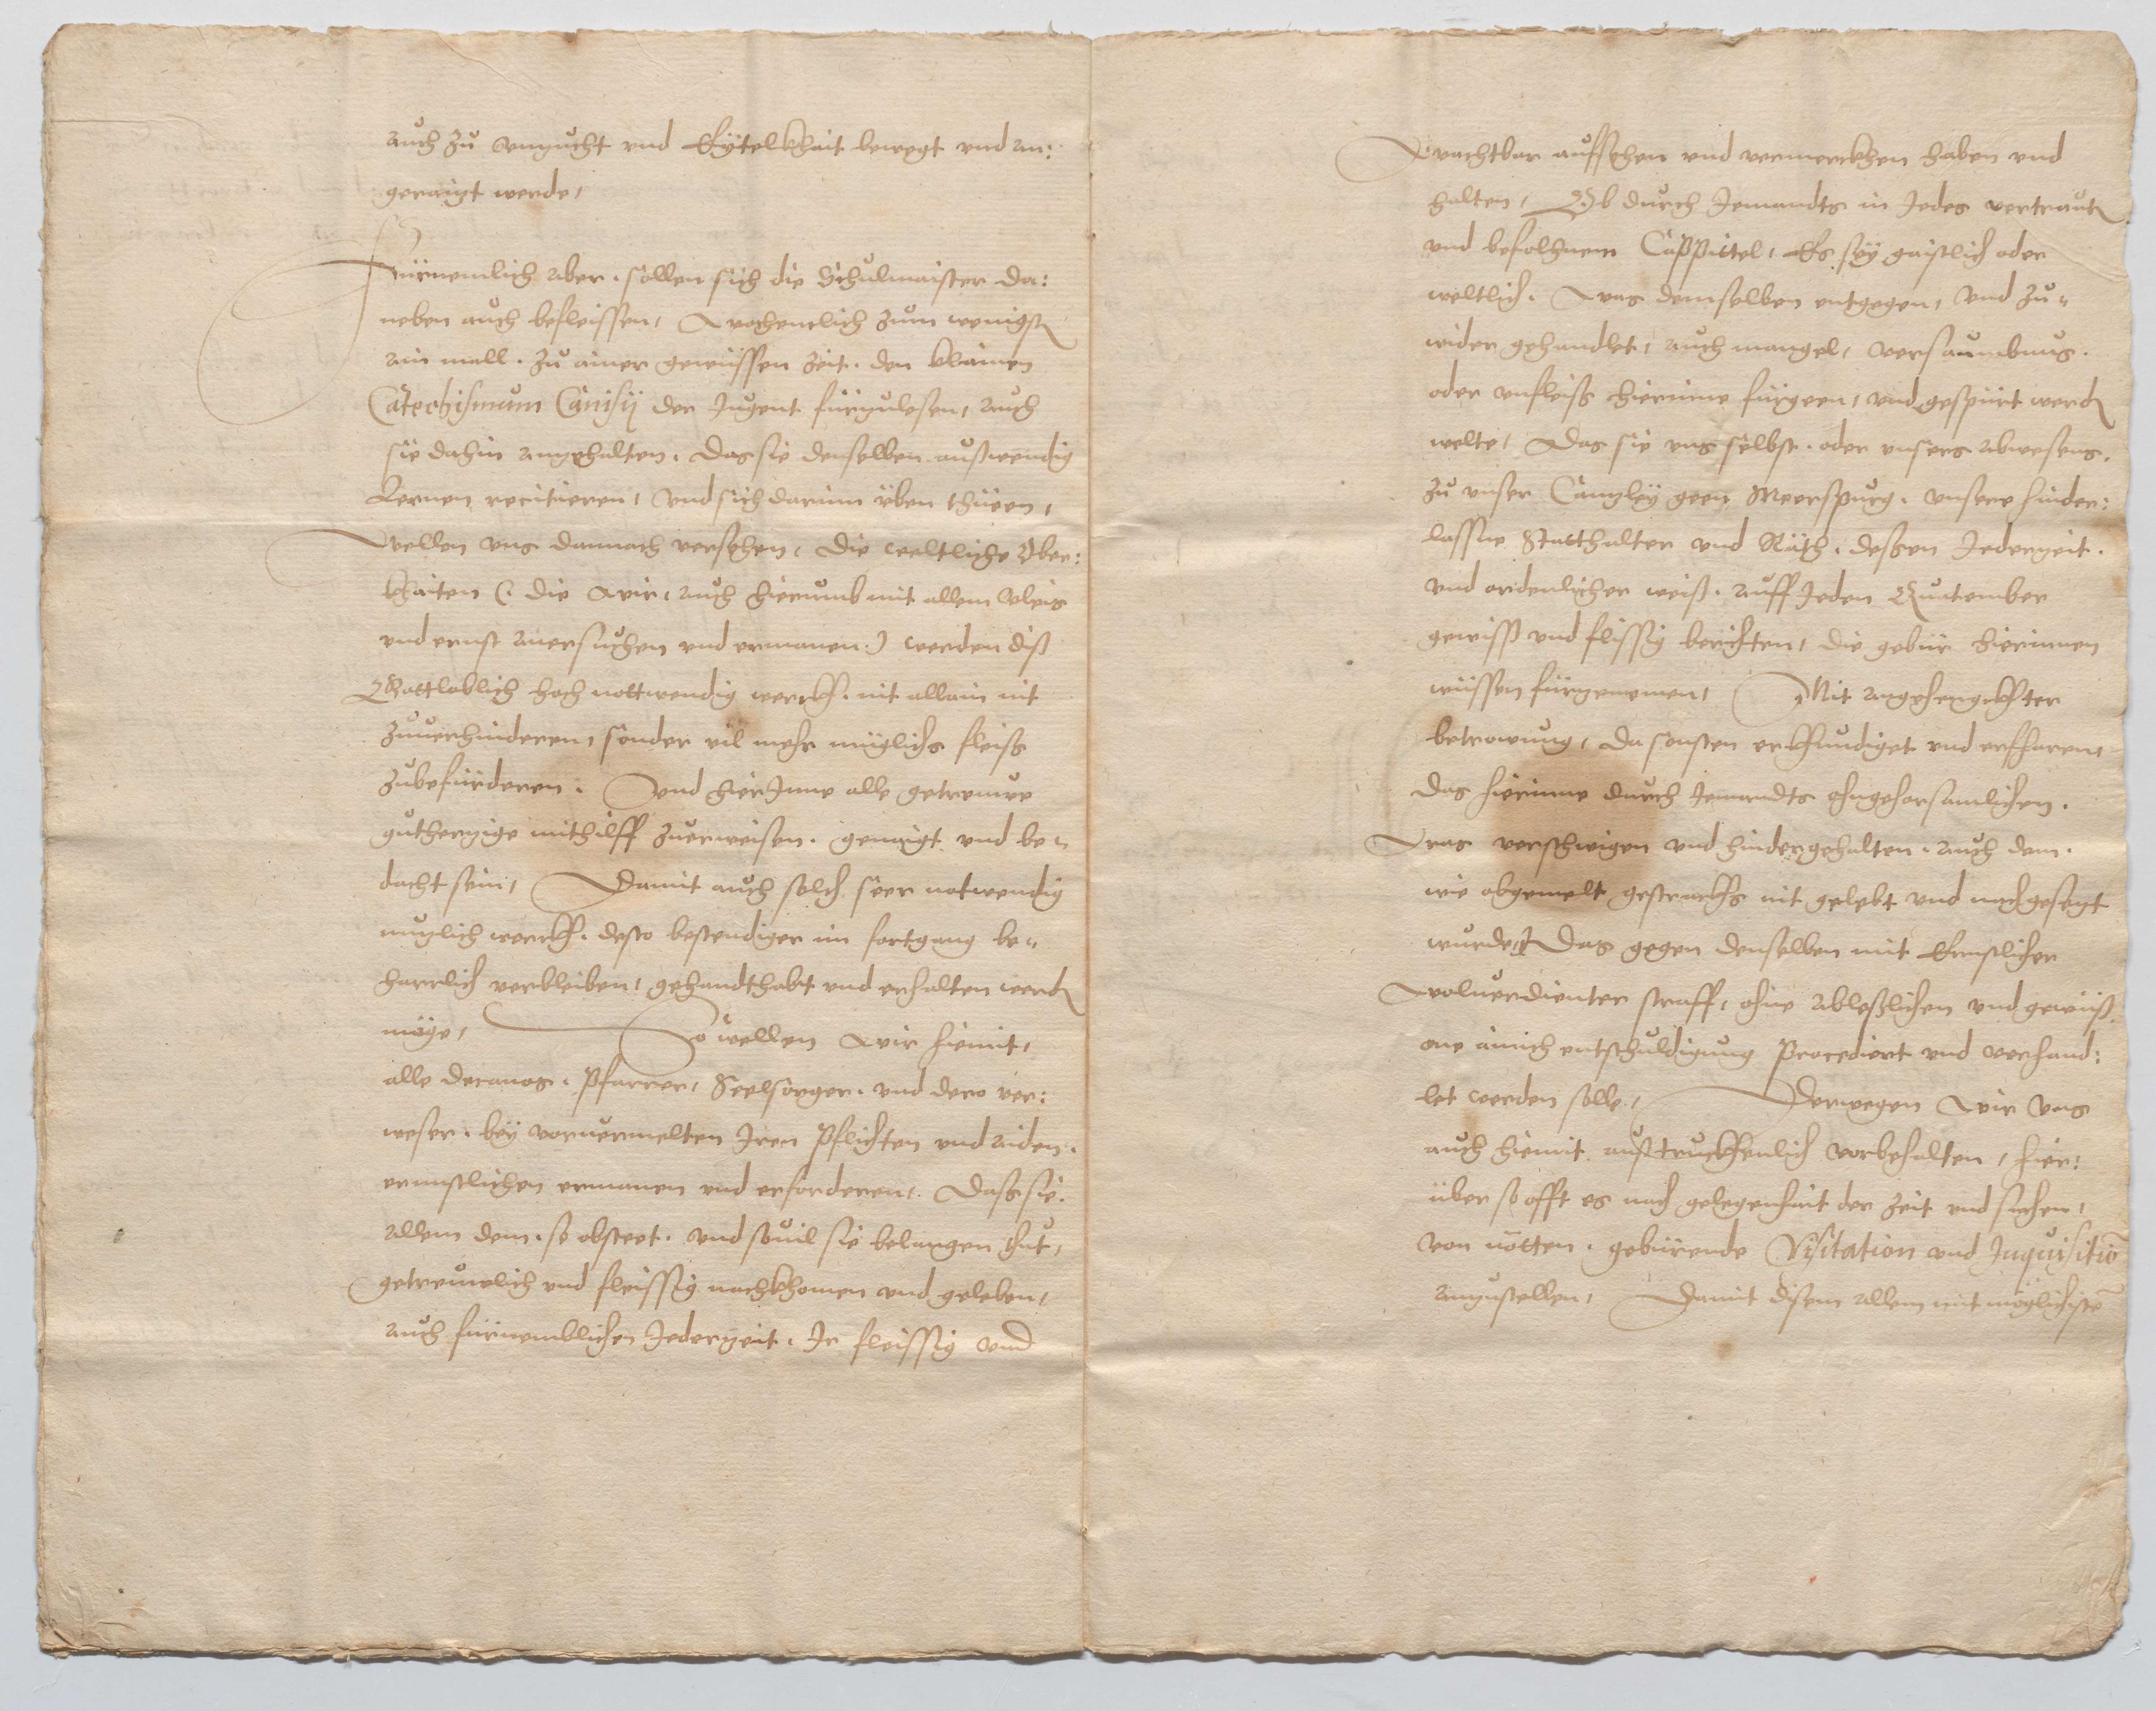 auch zu unzucht und Eÿtelkhait bewegt und an:
geraizt werde,
Fürnemlich aber. sollen sich die Schulmaister da:
neben auch befleissen, Wochentlich zum wenigst
ain mall. zu ainer gewüssen Zeit. den klainen
Catechismum Canisÿ der Jugent fürzulesen, auch
sie dahin anzehalten. Das sie denselben außwendig
Lernen, recitieren, und sich darinn üben thüeen,
Wellen uns darnach versehen, die weltliche Ober:
khaiten (: die Wir, auch hierumb mit allem Vleis
und ernst anersuchen und ermanen:) werden diß
Gottloblich hoch nottwendig werckh. nit allain nit
zuverhinderen, sonder vil mehr müglichs fleiß
zubefürderen. Und hierJnne alle getrewe
guthertzige mithilff zuerweisen. genaigt und be„
dacht sein, Damit auch solch seer notwendig
nuzlich werckh. desto bestendiger im fortgang be„
harrlich verbleiben, gehandthabt und erhalten werd
möge, So wellen Wir hiemit,
alle decanos. Pfarrer, Seelsorger. und dero ver:
weser. beÿ vorvermelten Jren Pflichten und aiden.
ernnstlichen ermanen und erforderen. Daß sie.
allem dem. so obsteet. und sovil sie belangen thut,
getreuwlich und fleissig nachkhomen und geleben,
auch fürnemblichen Jederzeit. Jr fleissig und
Wachtbar auffsehen und vermerckhen haben und
halten, Ob durch Jemandts in Jedes vertraut
und befolhnem Cappittel, Es seÿ gaistlich oder
weltlich. Was demselben entgegen, und zu„
wider gehandlet, auch mangel, versaumbnus.
oder unfleiß hierinne fürgeen, und gespürt werd
welte, Das sie uns selbst. oder unsers abwesens.
zu unser Canzleÿ geen Meerspurg. unsere hinder:
lassne Statthalter und Räth. dessen Jederzeit.
und ordenlicher weiß. auff Jeden Quatember
gewiß und flissig berichten, die gebür hierinnen
wüssen fürzenemen, Mit angehengckhter
betrowung, Da sonsten erkhundiget und erfharen,
das hierinne durch Jemandts ohngehorsamlichen.
Was verschwigen und hindergehalten. auch dem.
wie obgemelt gestrackhs nit gelebt und nachgesezt
wurde, Das gegen denselben mit Ernstlicher
Wolverdienter straff, ohne ableßlichen und gewüß.
one ainich entschuldigung Procediert und verhand:
let werden solle, Derwegen Wir uns
auch hiemit außtruckhenlich vorbehalten, hier:
über so offt es nach gelegenhait der Zeit und sachen,
von nötten. gebürende Visitation und Inquisitiō
anzustellen, Damit disem allem mit möglichistē